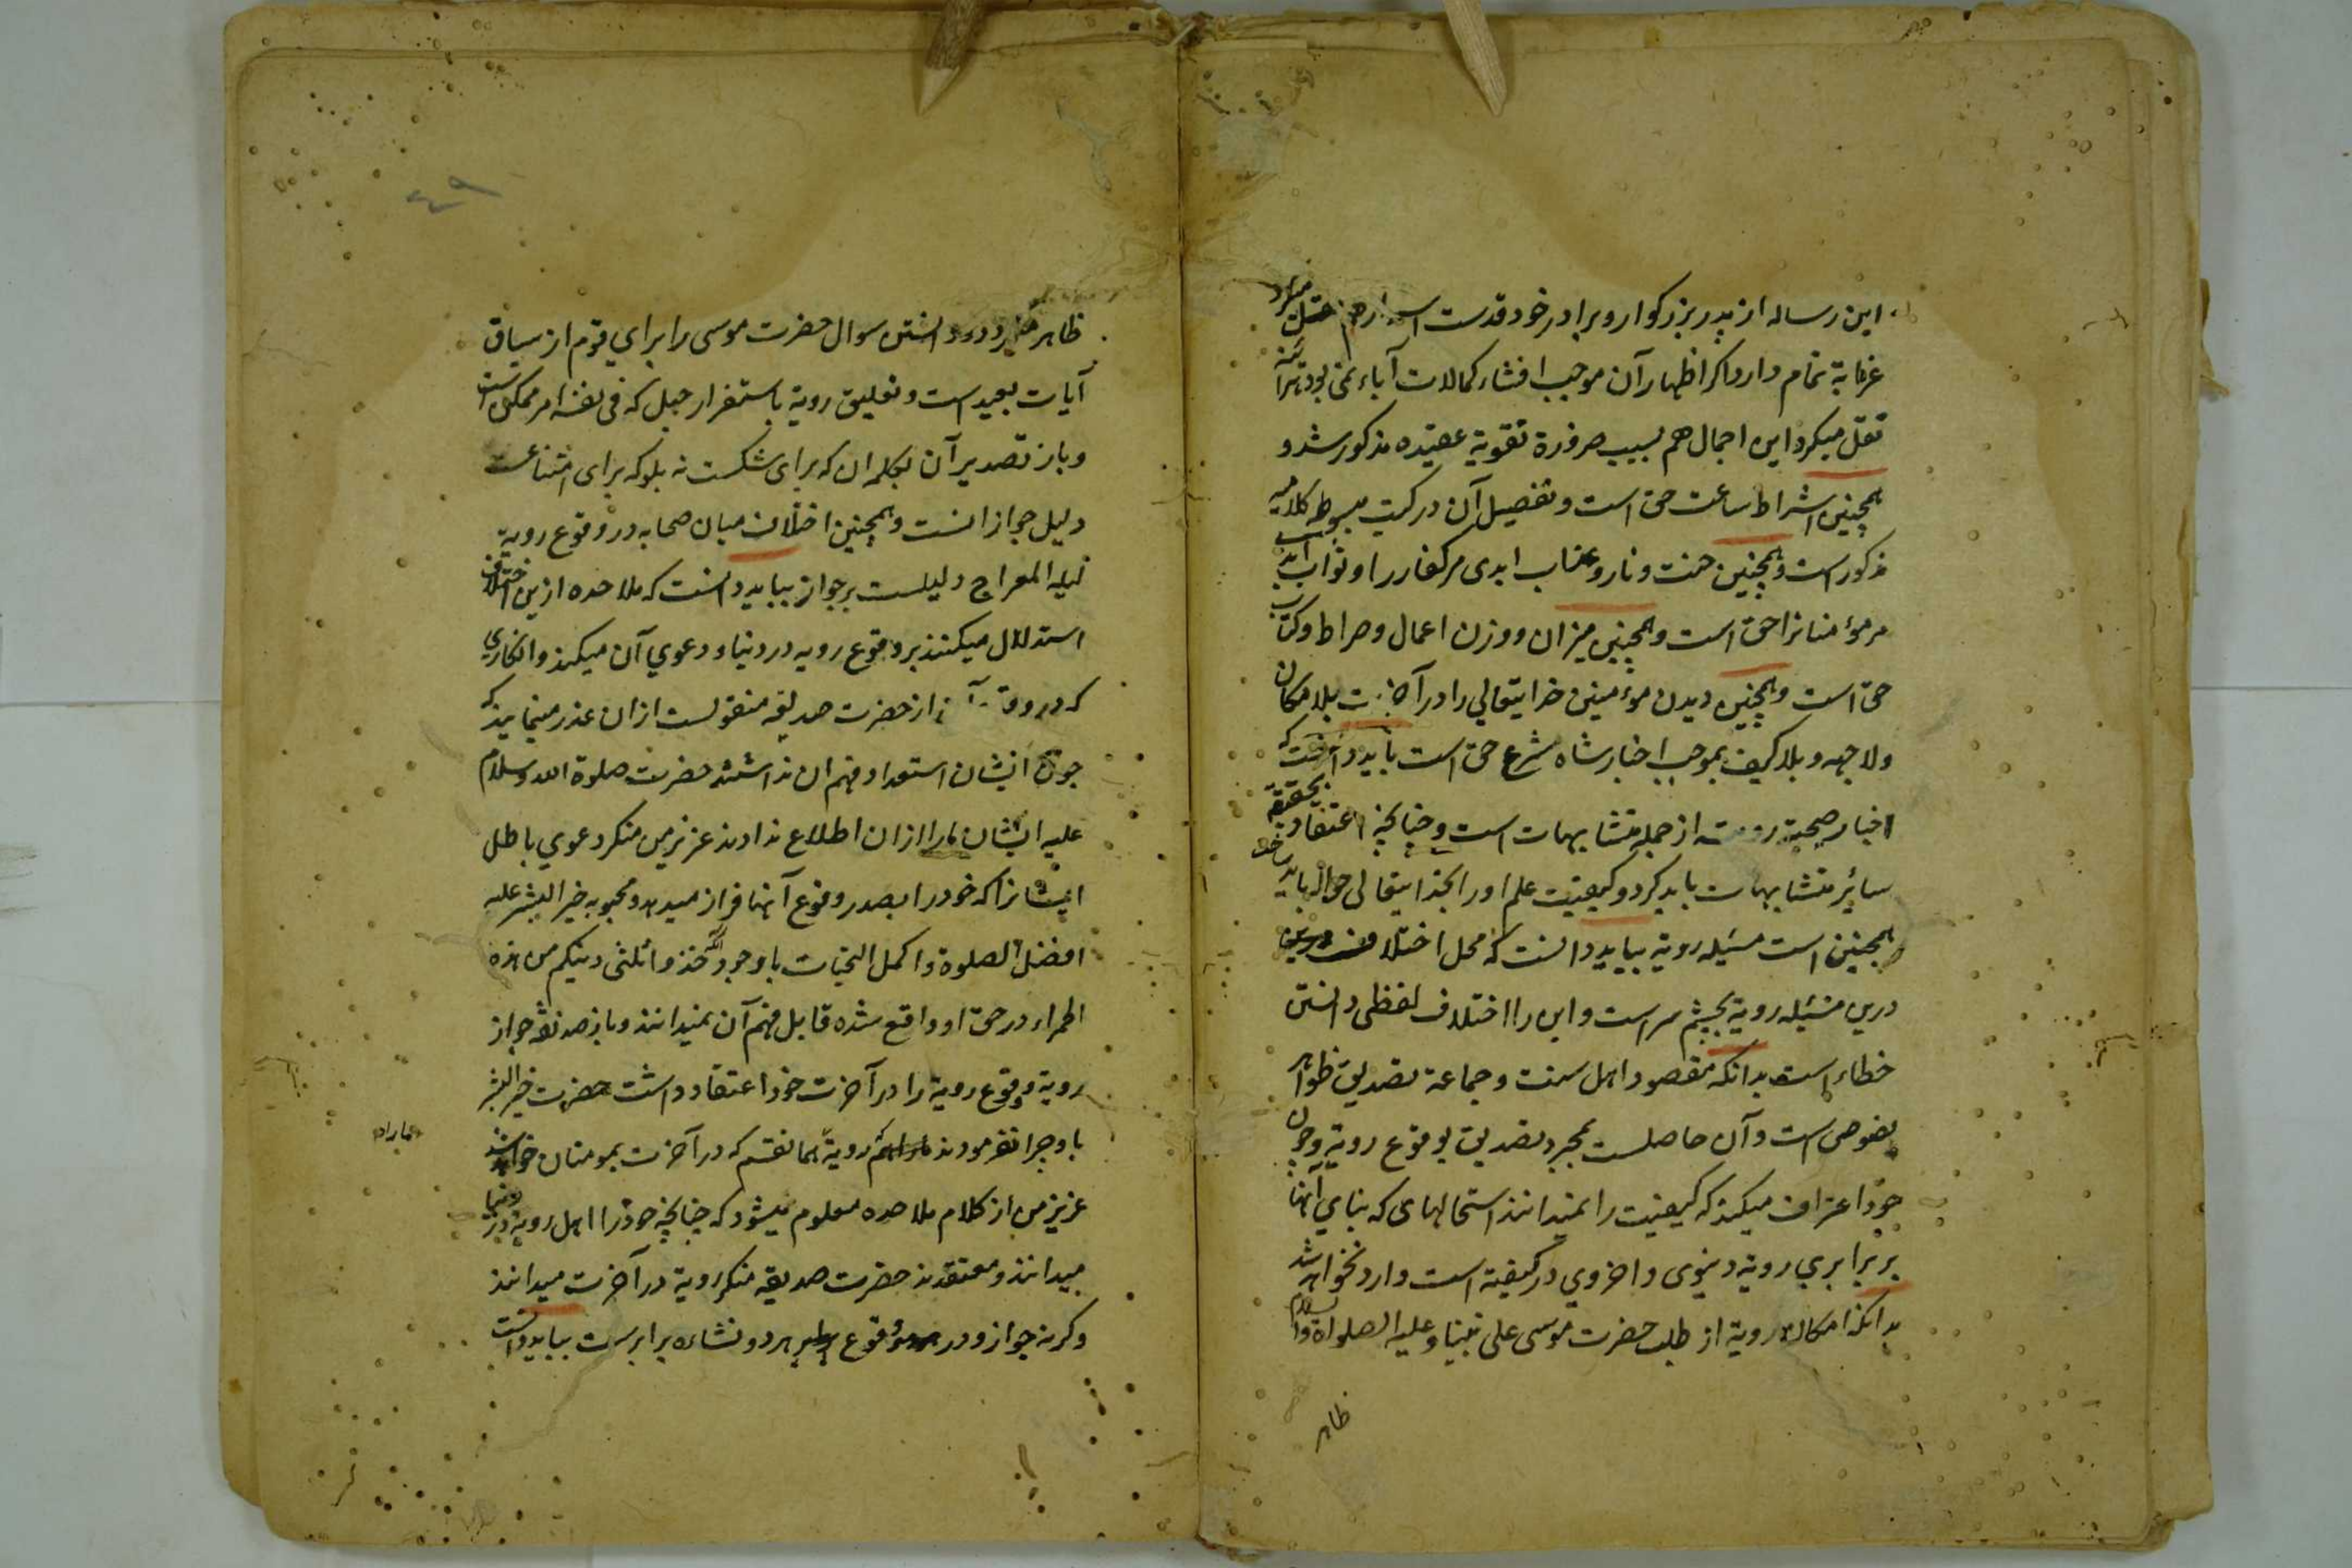 این رساله از پدر بزرگوار و برادر خود قدست
غرابة تمام دارد اگر اظهار آن موجب افشاء کمالات آباء نمی بود
نقل میکرد این اجمال هم بسبب ضرورة تقویة عقیده مذکور شد و
همچنین اشراط ساعت حق است و تفصیل آن در کتب مبسوطه کلامیه
مذکور است و همچنین جنت و نار و عذاب ابدی مر کفار را و ثواب ابد
مر مؤمنانرا حق است و همچنین میزان و وزن اعمال و صراط و کتاب
حق است و همچنین دیدن مؤمنین خدایتعالی را در آخرت بلا مکان
ولا جهه و بلا کیف بموجب اخبار شاه شرع حق است باید دانست که
اخبار صحیة از جمله متشابهات است و چنانچه اعتقاد بحقیقة
سائر متشابهات باید کرد و کیفیت علم او را بخدایتعالی حواله باید ساخت
همچنین است مسٔیله رویة بباید دانست که محل اختلاف
درین مسٔیله رویة بچشم سر است و این را اختلاف لفظی دانستن
خطاء است بدانکه مقصود اهل سنت و جماعة تصدیق ظواهر
نصوص است و آن حاصلست بمجرد تصدیق بوقوع رویة و چون
خود اعتراف میکنند که کیفیت را نمیدانند استحالهای که بنای آنها
بر برابری رویة دنیوی و اخروی در کیفیة است وارد نخواهد شد
بدانکه امکان رویة از طلب حضرت موسی علی نبینا و علیه الصلواة والسلام
ظاهر
٤٩
ظاهر میگردد و دانستن سوال حضرت موسی را برای قوم از سیاق
آیات بعید است و تعلیق رویة باستقرار جبل که فی نفسه امر ممکن است
و باز تصدیر آن بکلمه ان که برای شکست نه بلو که برای امتناعست
دلیل جواز انست و همچنین اختلاف میان صحابه در وقوع رویة
لیله المعراج دلیلست بر جواز بباید دانست که ملاحده ازین اختلاف
استدلال میکنند بر وقوع رویه در دنیا و دعوی آن میکنند و انکاری
که در وقوع آن از حضرت صدیقه منقولست ازان عذر مینمایند که
چون ایشان استعداد فهم ان نداشتند حضرت صلوة الله و سلام
علیه ایشان را ازان اطلاع ندادند عزیز من منکر دعوی باطل
ایشانرا که خود را بصدد وقوع آنها قرار میدهد و محبوبه خیر البشر علیه
افضل الصلوة و اکمل التحیات با وجود آنکه خذوا ثلثی دینکم من هذه
الحمراء در حق او واقع شده قابل فهم آن نمیدانند و باز صدیقه جواز
رویة و وقوع رویة را در آخرت خود اعتقاد داشت حضرت خیر البشر
باو چرا نفرمودند رویة همانقسم که در آخرت بمومنان خواهد شد
عزیز من از کلام ملاحده معلوم میشود که چنانچه خود را اهل رویة در دنیا
میدانند و معتقدند حضرت صدیقه منکر رویة در آخرت میدانند
و گرنه جواز و در وقوع هر دو نشاءه برابرست بباید دانست